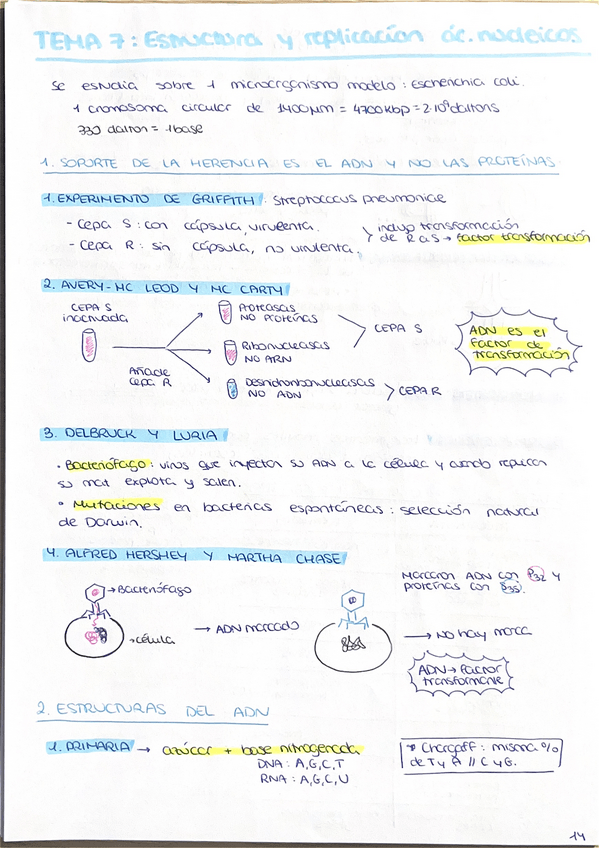 TEMA 7: Estructura y replicación ác. nucleicos
Se estudia sobre 1 microorganismo modelo: Escherichia coli.
1 cromosoma circular de 1400µm = 4700Kbp = 2·10⁹ daltons
330 dalton = 1base
1. SOPORTE DE LA HERENCIA ES EL ADN Y NO LAS PROTEÍNAS
1. EXPERIMENTO DE GRIFFITH: Streptococcus pneumoniae
- Cepa S: con cápsula, virulenta.
- Cepa R: sin cápsula, no virulenta.
indujo transformación
de R a S → factor transformación
2. AVERY-MC LEOD Y MC CARTY
CEPA S
inactivada
Añade
cepa R
Proteasas
NO Proteínas
Ribonucleasas
NO ARN
Desoxirribonucleasas
NO ADN
CEPA S
CEPA R
ADN es el
factor de
transformación
3. DELBRUCK Y LURIA
· Bacteriófago: virus que inyectan su ADN a la célula y cuando replican
su mat explota y salen.
· Mutaciones en bacterias espontáneas: selección natural
de Darwin.
4. ALFRED HERSHEY Y MARTHA CHASE
→ Bacteriófago
→ célula
→ ADN marcado
Marcaron ADN con P32 y
proteínas con S35.
→ No hay marca
ADN → factor
transformante
2. ESTRUCTURAS DEL ADN
1. PRIMARIA → azúcar + base nitrogenada
DNA: A,G,C,T
RNA: A,G,C,U
* Chargaff: misma %
de T y A // C y G.
14